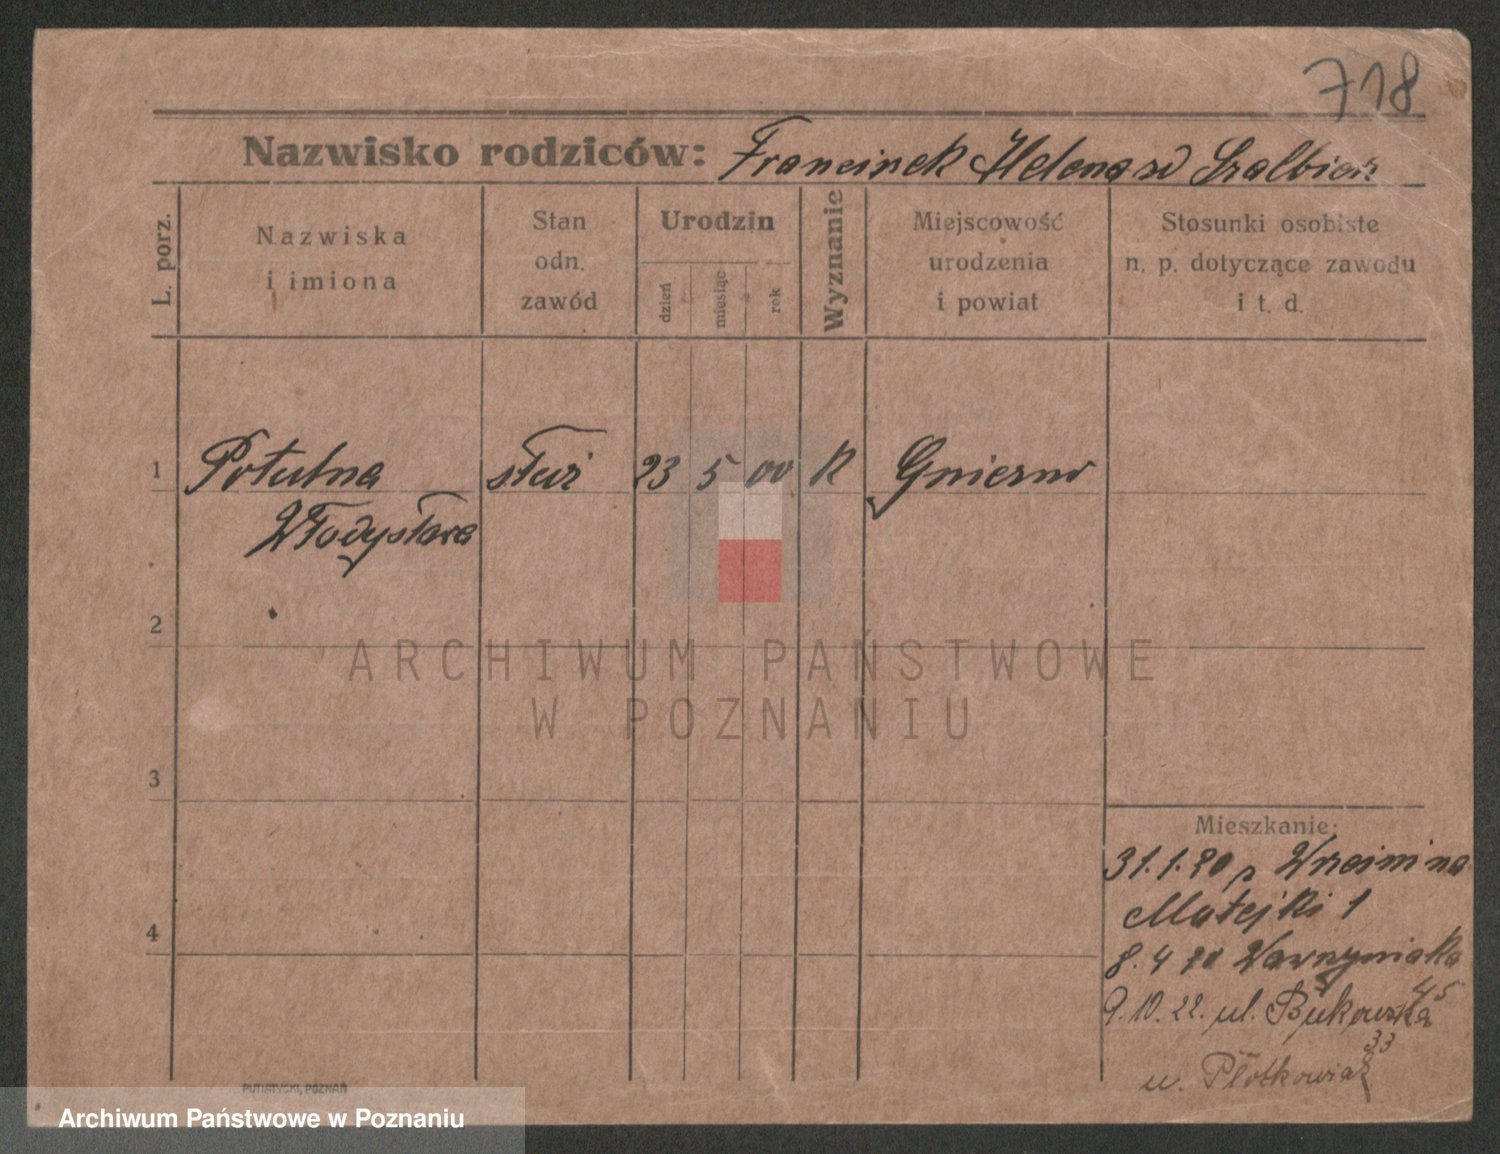 718
Nazwisko rodziców: Francinek Helena zd Szalbierz
L. porz.
Nazwiska
i imiona
Stan
odn.
zawód
Urodzin
dzień
miesiąc
rok
Wyznanie
Miejscowość
urodzenia
i powiat
Stosunki osobiste
n. p. dotyczące zawodu
i t. d.
1 Potulna służ 23 5 00 K Gniezno
Władysława
2
3
4
ARCHIWUM PAŃSTWOWE
W POZNANIU
Mieszkanie:
31.1.20 z
Matejki 1
8.4 20 Wawrzyniaka
45
9.10.22. ul. Bukowska
33
u.
PUTIATYCKI, POZNAŃ
Archiwum Państwowe w Poznaniu